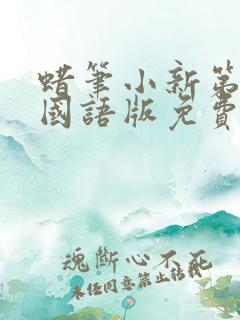 蜡筆小新第
國語版免費
魂斷心不死
未任同意禁止转载